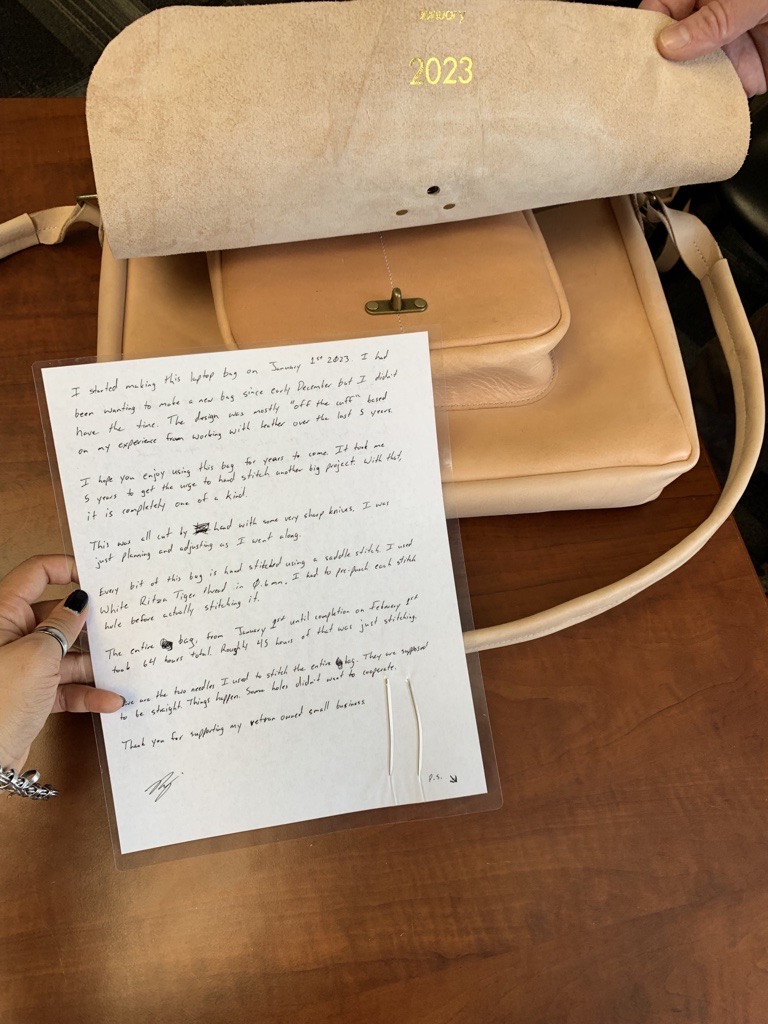 January
2023
I started making this laptop bag on January 1st 2023. I had
been wanting to make a new bag since early December but I didn't
have the time. The design was mostly "off the cuff" based
on my experience from working with leather over the last 5 years.
I hope you enjoy using this bag for years to come. It took me
5 years to get the urge to hand stitch another big project. With that,
it is completely one of a kind.
This was all cut by hand with some very sharp knives. I was
just planning and adjusting as I went along.
Every bit of this bag is hand stitched using a saddle stitch. I used
White Ritza Tiger thread in 0.6mm. I had to pre-punch each stitch
hole before actually stitching it.
The entire bag, from January 1st until completion on February 1st
took 64 hours total. Roughly 45 hours of that was just stitching.
are the two needles I used to stitch the entire bag. They are supposed
to be straight. Things happen. Some holes didn't want to cooperate.
Thank you for supporting my veteran owned small business.
P.S.